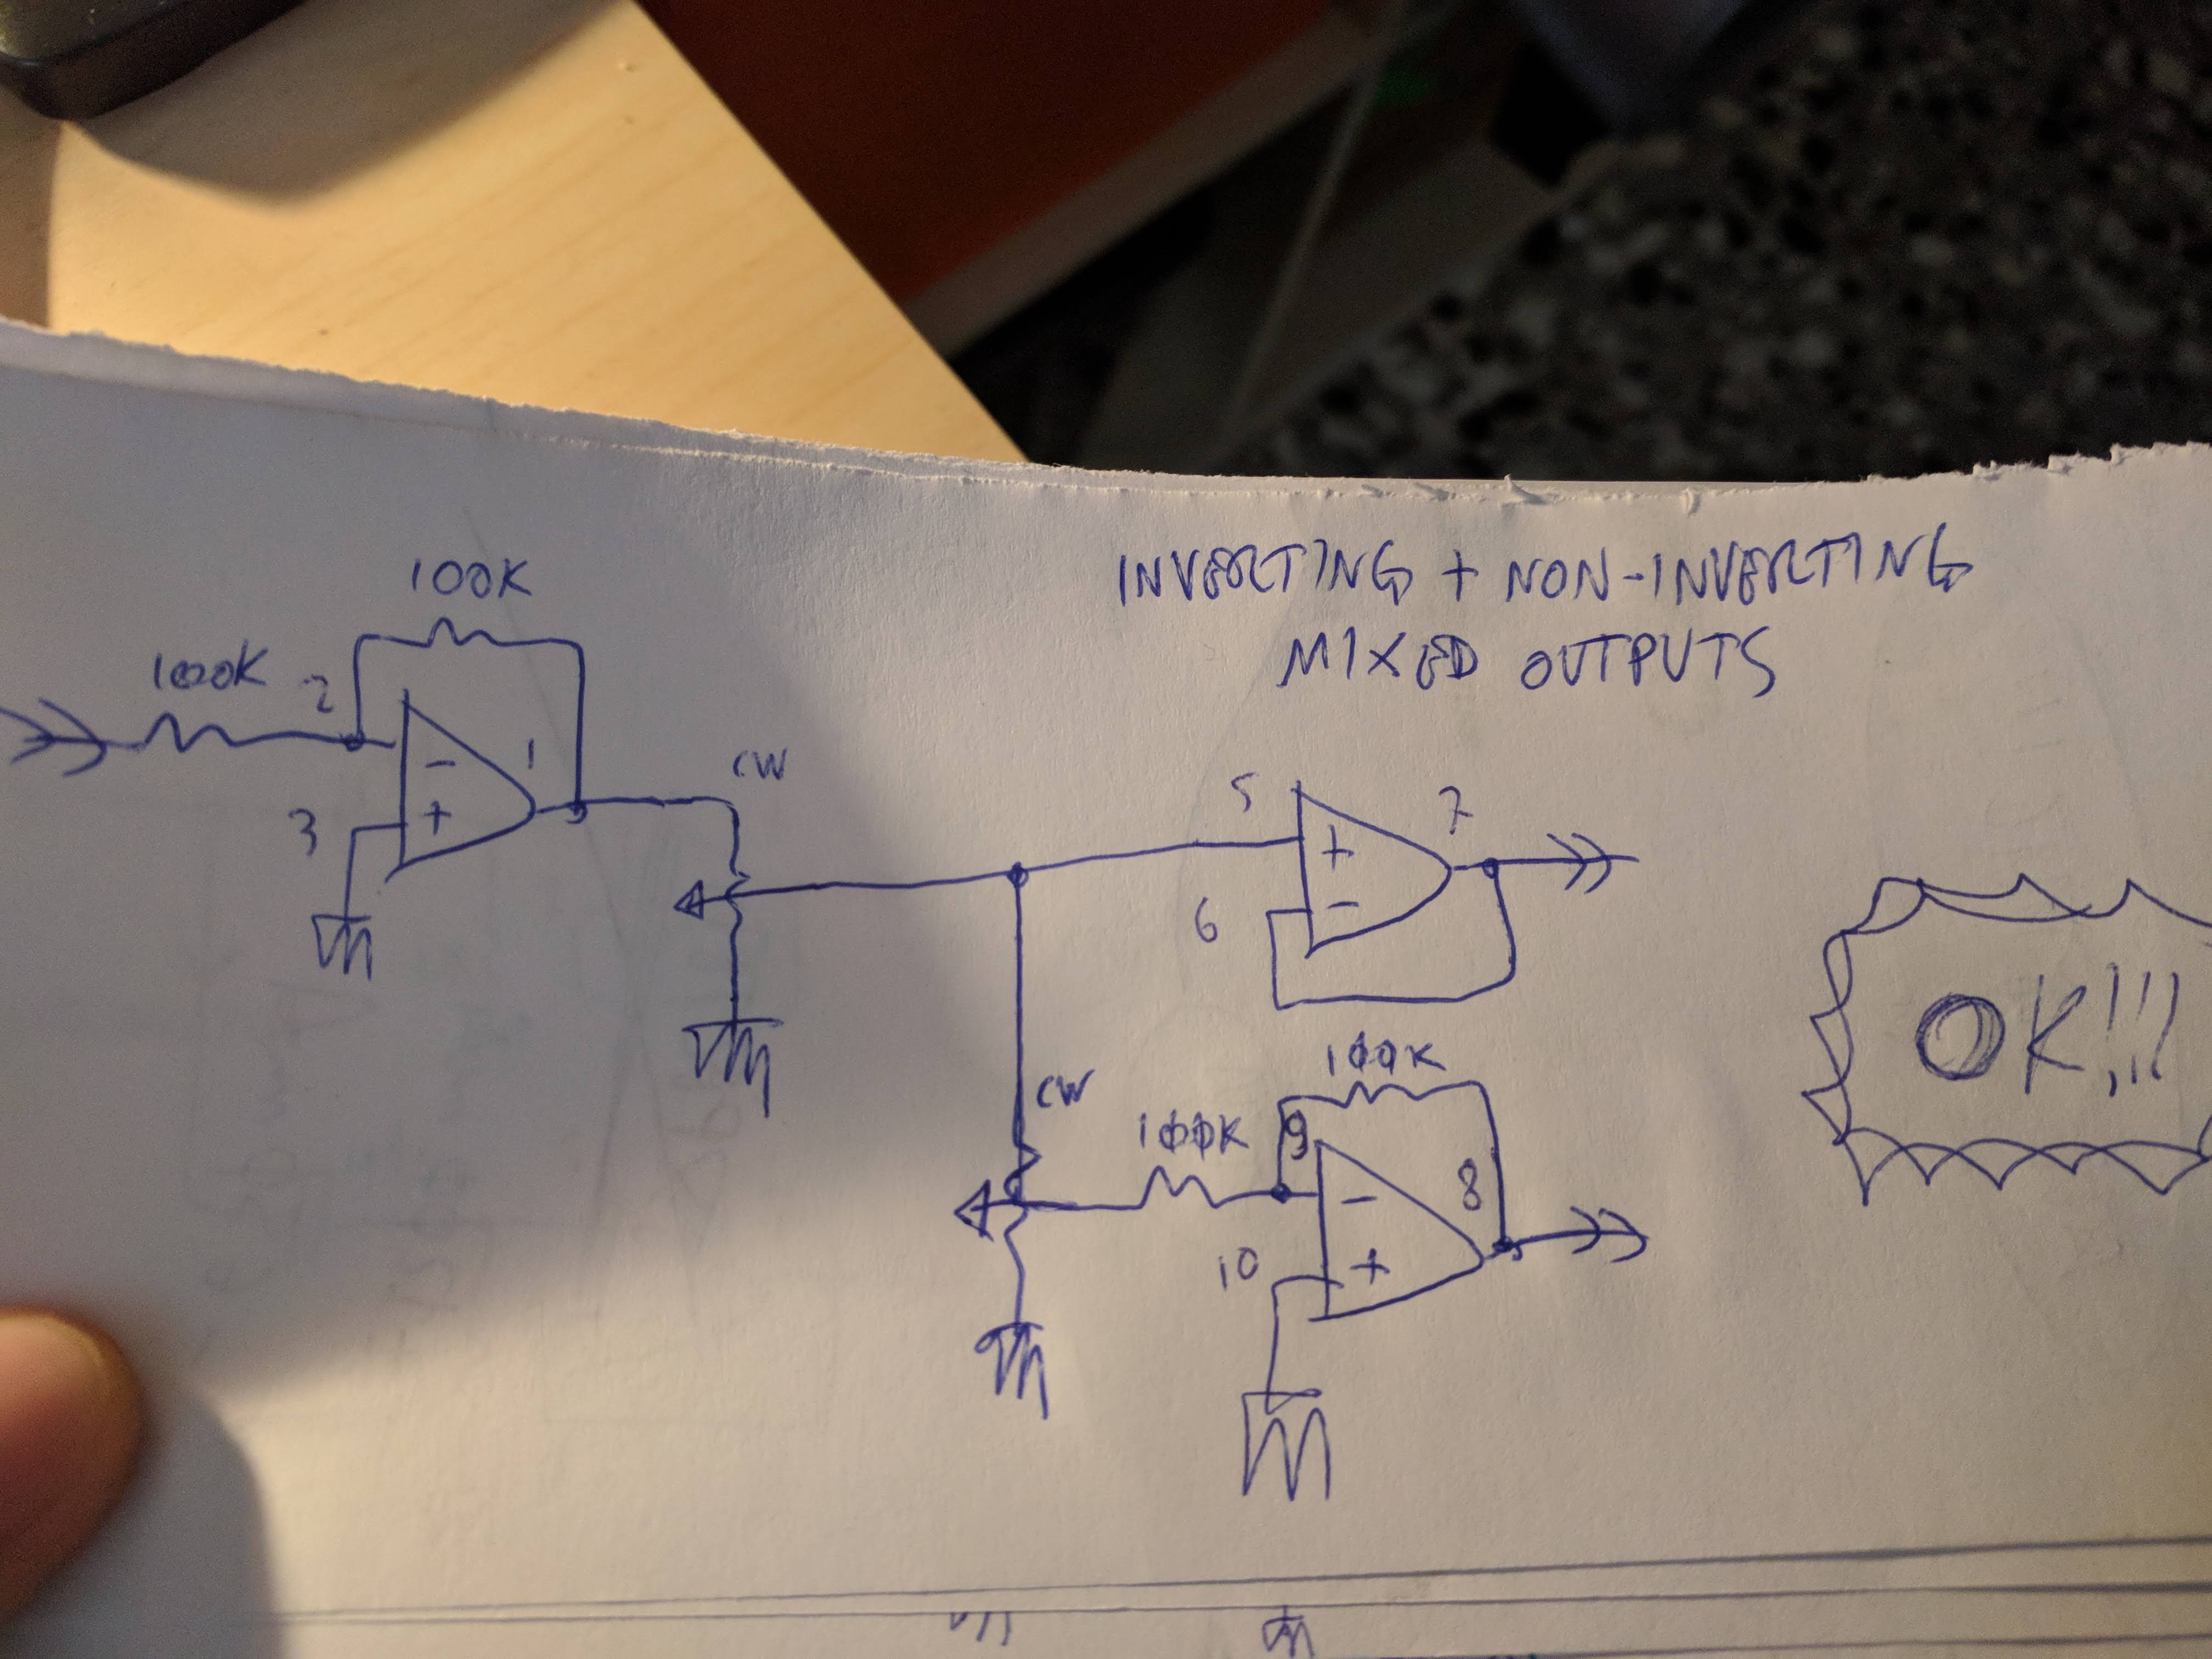 INVERTING + NON-INVERTING
MIXED OUTPUTS
100K
100K
2
-
1
3
+
CW
5
+
7
6
-
OK!!!
100K
CW
100K
9
-
8
10
+